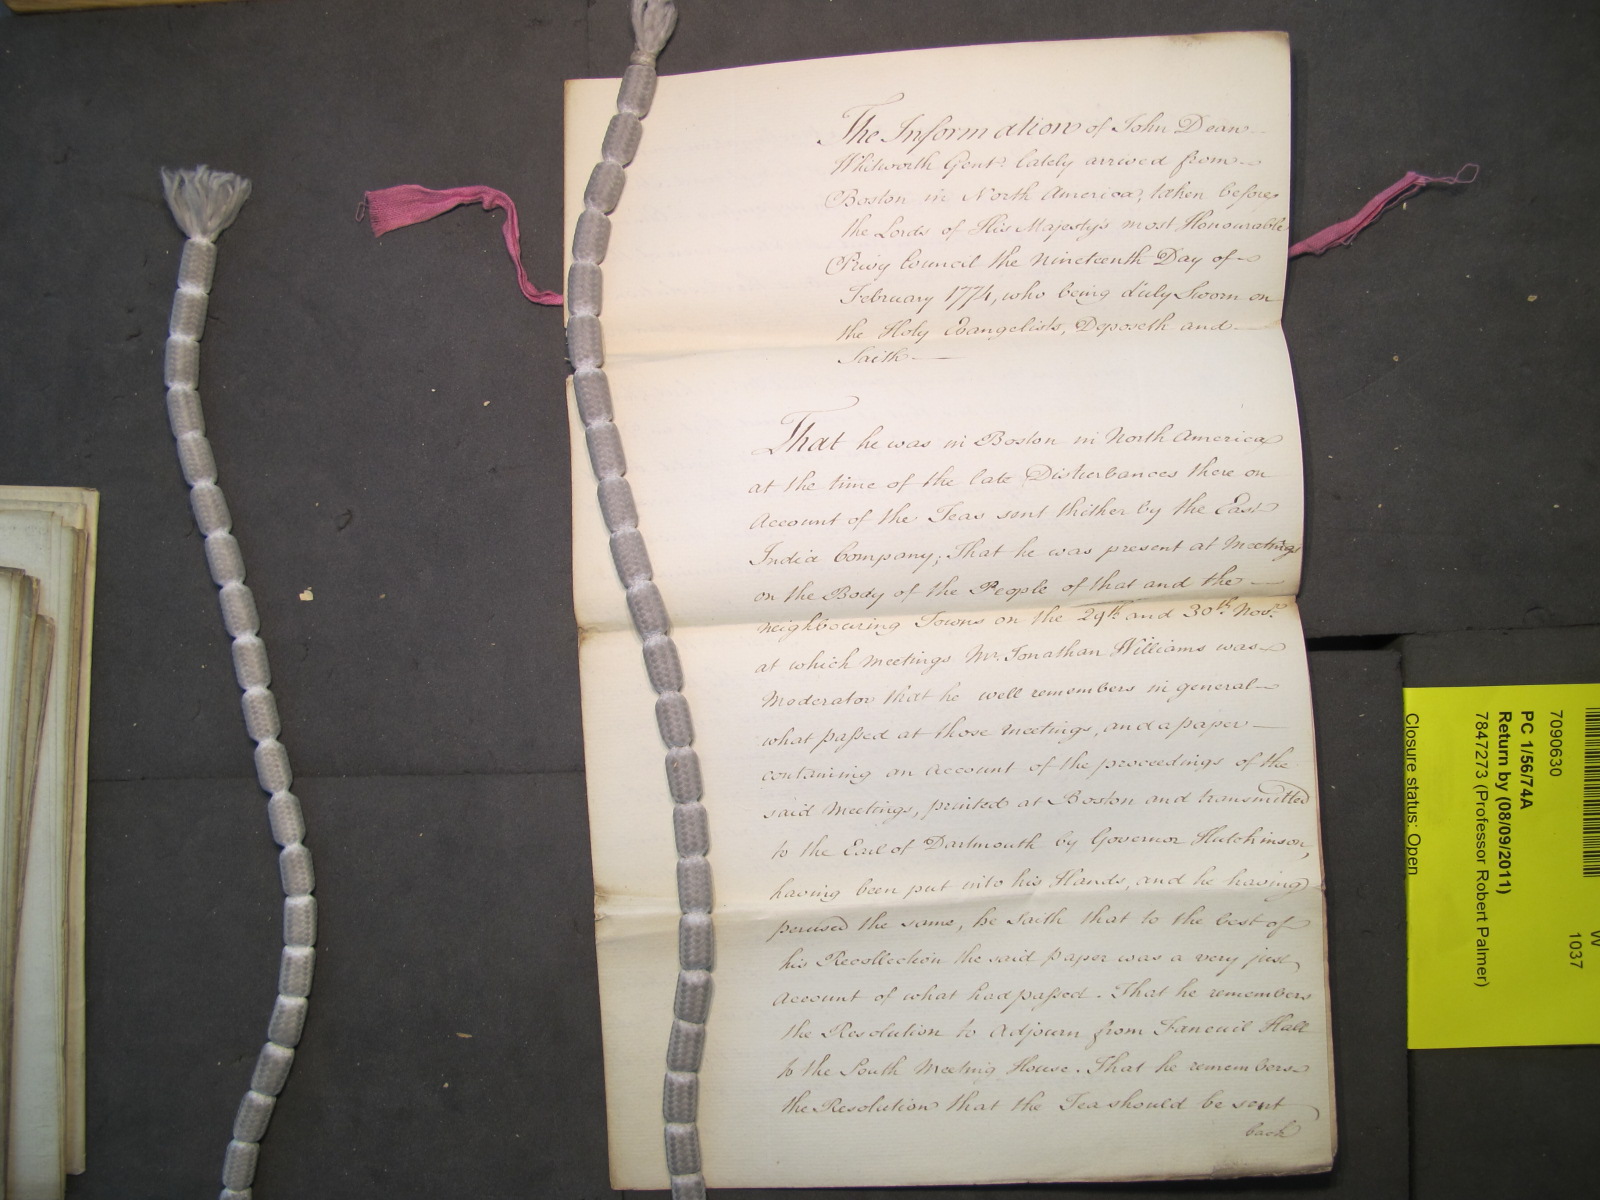 The Information of John Dean
Whitworth Gent. lately arrived from
Boston in North America, taken before
the Lords of His Majesty's most Honourable
Privy Council the Nineteenth Day of
February 1774, who being duly Sworn on
the Holy Evangelists, Deposeth and
Saith
That he was in Boston in North America
at the time of the late Disturbances there on
Account of the Teas sent thither by the East
India Company; That he was present at Meetings
on the Body of the People of that and the
neighbouring Towns on the 29th and 30th Novr.
at which Meetings Mr. Jonathan Williams was
Moderator that he well remembers in general
what passed at those Meetings, and a paper
containing an Account of the proceedings of the
said Meetings, printed at Boston and transmitted
to the Earl of Dartmouth by Governor Hutchinson,
having been put into his Hands, and he having
perused the same, he Saith that to the best of
his Recollection the said paper was a very just
Account of what had passed. That he remembers
the Resolution to Adjourn from Faneuil Hall
to the South Meeting House. That he remembers
the Resolution that the Tea should be sent
back
W
1037
7090630
PC 1/56/74A
Return by (08/09/2011)
7847273 (Professor Robert Palmer)
Closure status: Open